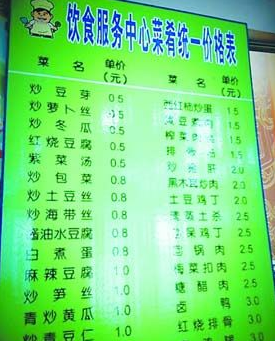 饮食服务中心菜肴统一价格表
菜 名 单价(元) 菜 名 单价(元)
炒豆芽 0.5 西红柿炒蛋 1.5
炒萝卜丝 0.5 1.5
炒冬瓜 0.5 榨菜肉丝 1.5
红烧豆腐 0.5 1.5
紫菜汤 0.5 2.0
炒包菜 0.8 黑木耳炒肉 2.0
炒土豆丝 0.8 土豆鸡丁 2.0
炒海带丝 0.8 2.5
酱油水豆腐 0.8 宫保鸡丁 2.5
白煮蛋 0.8 回锅肉 2.5
麻辣豆腐 1.0 梅菜扣肉 2.5
炒笋丝 1.0 糖醋肉 2.5
青炒黄瓜 1.0 卤鸭 3.0
炒青豆仁 1.0 红烧排骨 3.0